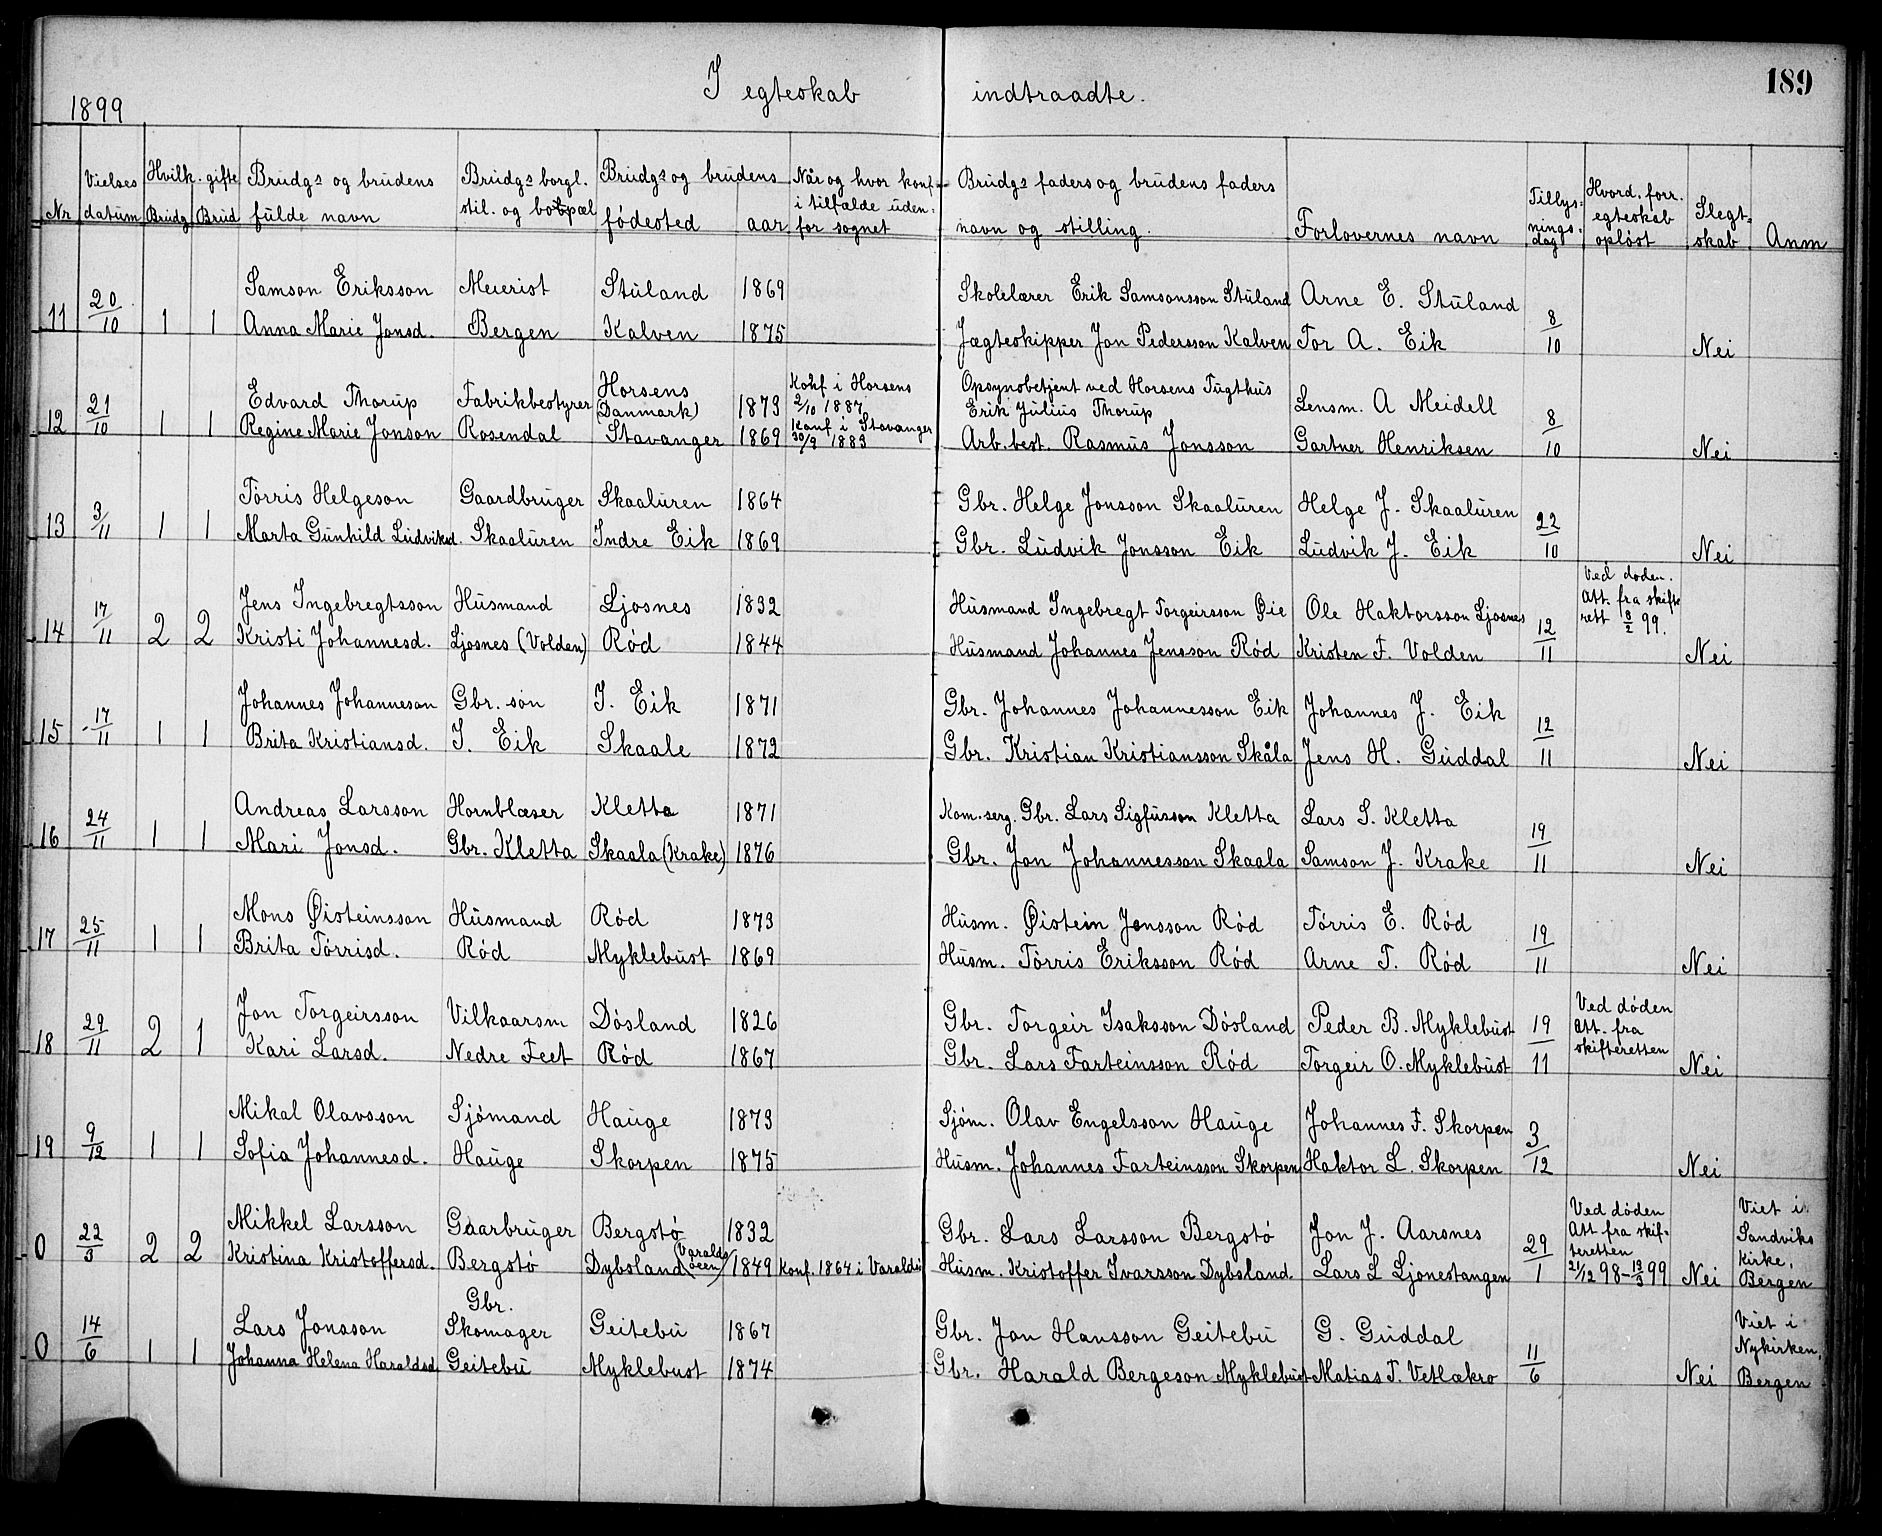 189
I egteskab indtraadte.
1899
Nr | Vielses datum | Hvilk. gifte Brudg | Brud | Brudgs og brudens fulde navn | Brudgs borgl. stil. og bopæl | Brudgs og brudens fødested | aar | Når og hvor konf. i tilfælde uden- for sognet | Brudgs faders og brudens faders navn og stilling. | Forlovernes navn | Tillys- nings- dag | Hvord. forr. egteskab opløst | Slegt- skab | Anm
11 | 20/10 | 1 | 1 | Samson Eriksson | Meierist | Stuland | 1869 | Skolelærer Erik Samsonsson Stuland | Arne E. Stuland | 8/10
Anna Marie Jonsd. | Bergen | Kalven | 1875 | Jægteskipper Jon Pedersson Kalven | Tor A. Eik | Nei
12 | 21/10 | 1 | 1 | Edvard Thorup | Fabrikbestyrer | Horsens (Danmark) | 1873 | Konf i Horsens 2/10 1887 | Opsynsbetjent ved Horsens Tugthus Erik Julius Thorup | Lensm. A Meidell | 8/10
Regine Marie Jonson | Rosendal | Stavanger | 1869 | Konf. i Stavanger 30/9 1883 | Arb.best. Rasmus Jonsson | Gartner Henriksen | Nei
13 | 3/11 | 1 | 1 | Tørris Helgeson | Gaardbruger | Skaaluren | 1864 | Gbr. Helge Jonsson Skaaluren | Helge J. Skaaluren | 22/10
Marta Gunhild Ludviksd. | Skaaluren | Indre Eik | 1869 | Gbr. Ludvik Jonsson Eik | Ludvik J. Eik | Nei
14 | 17/11 | 2 | 2 | Jens Ingebregtsson | Husmand | Ljosnes | 1832 | Husmand Ingebregt Torgeirsson Øie | Ole Haktorsson Ljosnes | 12/11 | Ved døden. Att. fra skifte rett 8/2 99.
Kristi Johannesd. | Ljosnes (Volden) | Rød | 1844 | Husmand Johannes Jensson Rød | Kristen F. Volden | Nei
15 | 17/11 | 1 | 1 | Johannes Johanneson | Gbr. søn | I. Eik | 1871 | Gbr. Johannes Johannesson Eik | Johannes J. Eik | 12/11
Brita Kristiansd. | I. Eik | Skaale | 1872 | Gbr. Kristian Kristiansson Skåla | Jens H. Guddal | Nei
16 | 24/11 | 1 | 1 | Andreas Larsson | Hornblæser | Kletta | 1871 | Kom.serg. Gbr. Lars Sigfusson Kletta | Lars S. Kletta | 19/11
Mari Jonsd. | Gbr. Kletta | Skaala (Krake) | 1876 | Gbr. Jon Johannesson Skaala | Samson J. Krake | Nei
17 | 25/11 | 1 | 1 | Mons Øisteinsson | Husmand | Rød | 1873 | Husm. Øistein Jensson Rød | Tørris E. Rød | 19/11
Brita Tørrisd. | Rød | Myklebust | 1869 | Husm. Tørris Eriksson Rød | Arne T. Rød | Nei
18 | 29/11 | 2 | 1 | Jon Torgeirsson | Vilkaarsm | Døsland | 1826 | Gbr. Torgeir Isaksson Døsland | Peder B. Myklebust | 19/11 | Ved døden Att. fra skifteretten
Kari Larsd. | Nedre Feet | Rød | 1867 | Gbr. Lars Farteinsson Rød | Torgeir O. Myklebust | Nei
19 | 9/12 | 1 | 1 | Mikal Olavsson | Sjømand | Hauge | 1873 | Sjøm. Olav Engelsson Hauge | Johannes F. Skorpen | 3/12
Sofia Johannesd. | Hauge | Skorpen | 1875 | Husm. Johannes Farteinsson Skorpen | Haktor L. Skorpen | Nei
0 | 22/3 | 2 | 2 | Mikkel Larsson | Gaarbruger | Bergstø | 1832 | Gbr. Lars Larsson Bergstø | Jon J. Aarsnes | 29/1 | Ved døden Att fra skif- teretten 21/12 98 – 13/3 99 | Viet i Sandviks Kirke, Bergen
Kristina Kristoffersd. | Bergstø | Dybsland (Varalds øen) | 1849 | Konf. 1864 i Varaldsø | Husm. Kristoffer Ivarsson Dybsland. | Lars L Ljonestangen | Nei
0 | 14/6 | 1 | 1 | Lars Jonsson | Gbr. Skomager | Geitebu | 1867 | Gbr. Jon Hansson Geitebu | G. Guddal | 11/6 | Viet i Nykirken, Bergen
Johanna Helena Haraldsd. | Geitebu | Myklebust | 1874 | Gbr. Harald Bergeson Myklebust | Matias T. Vetlækro | Nei